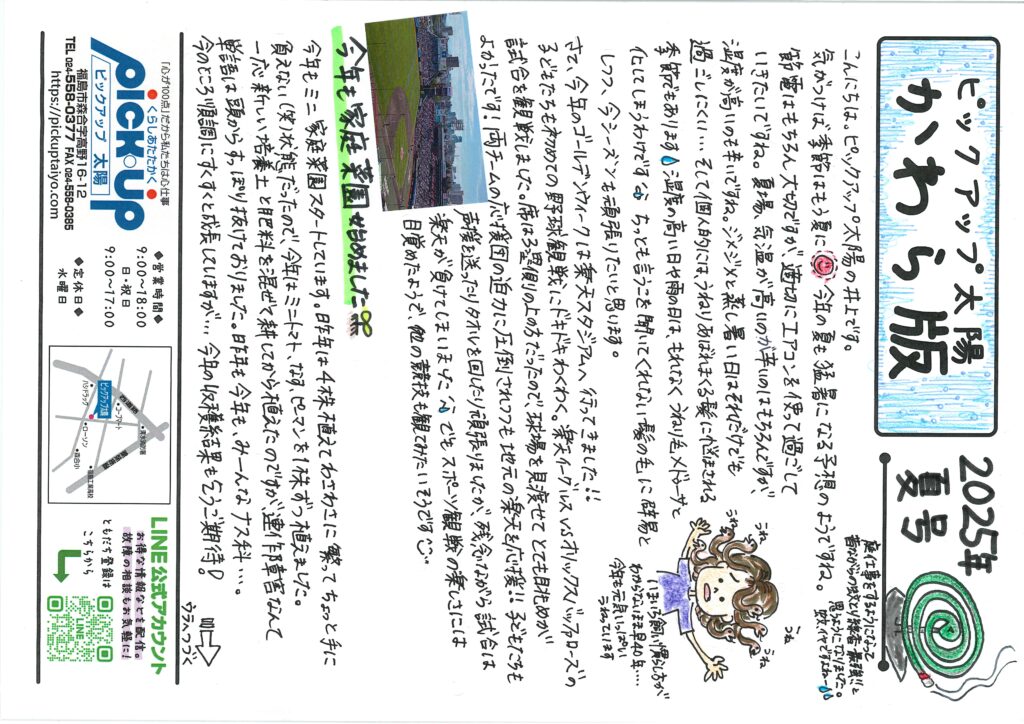 ピックアップ太陽
かわら版
2025年
夏号
庭仕事をするようになって
昔ながらの蚊とり線香最強!!と
思うようになりました。
蚊イヤですねー
こんにちは。ピックアップ太陽の井上です。
気がつけば季節はもう夏に 今年の夏も猛暑になる予想のようですね。
節電はもちろん大切ですが適切にエアコンを使って過ごして
いきたいですね。夏場、気温が高いのが辛いのはもちろんですが、
湿度が高いのも辛いですね。ジメジメと蒸し暑い日はそれだけでも
過ごしにくい…そして個人的には、うねりあばれまくる髪に悩まされる
季節でもあります 湿度の高い日や雨の日は、もれなくうねり毛メドゥーサと
化してしまうわけです ちっとも言うことを聞いてくれない髪の毛に辟易と
しつつ、今シーズンも頑張りたいと思います。
うね
うね
うね
うね
いまいち飼い慣らし方が
わからないまま早40年….
今年も元気いっぱい
うねっています
さて、今年のゴールデンウィークは楽天スタジアムへ行ってきました!!
子どもたちも初めての野球観戦にドキドキわくわく。楽天イーグルスvsオリックスバッファローズの
試合を観戦しました。席は3塁側の上の方だったので、球場を見渡せてとても眺めが
よかったです!両チームの応援団の迫力に圧倒されつつも地元の楽天を応援!!子どもたちも
声援を送ったりタオルを回したり頑張りましたが、残念ながら試合は
楽天が負けてしまいました でもスポーツ観戦の楽しさには
目覚めたようで、他の競技も観てみたいそうです
今年も家庭菜園始めました
今年もミニ家庭菜園スタートしています。昨年は4株植えてわさわさに繁ってちょっと手に
負えない(笑)状態だったので、今年はミニトマト、なす、ピーマンを1株ずつ植えました。
一応新しい培養土と肥料を混ぜて耕してから植えたのですが、連作障害なんて
単語は頭からすっぽり抜けておりました。昨年も今年も、みーんなナス科…。
今のところ順調にすくすくと成長していますが…今年の収穫結果も乞うご期待!
ウラへつづく
「心が100点」だから私たちは心仕事
くらしあたたかく
PICK・UP
ピックアップ 太陽
福島市森合字高野16-12
TEL 024-558-0377 FAX 024-558-0385
https://pickuptaiyo.com
◆営業時間◆
9:00～18:00
日・祝日
9:00～17:00
◆定休日◆
水曜日
ピックアップ太陽
ローソン
コープマート
LINE公式アカウント
お得な情報などを配信。
故障の相談もお気軽に!
ともだち登録は
こちらから
LINE